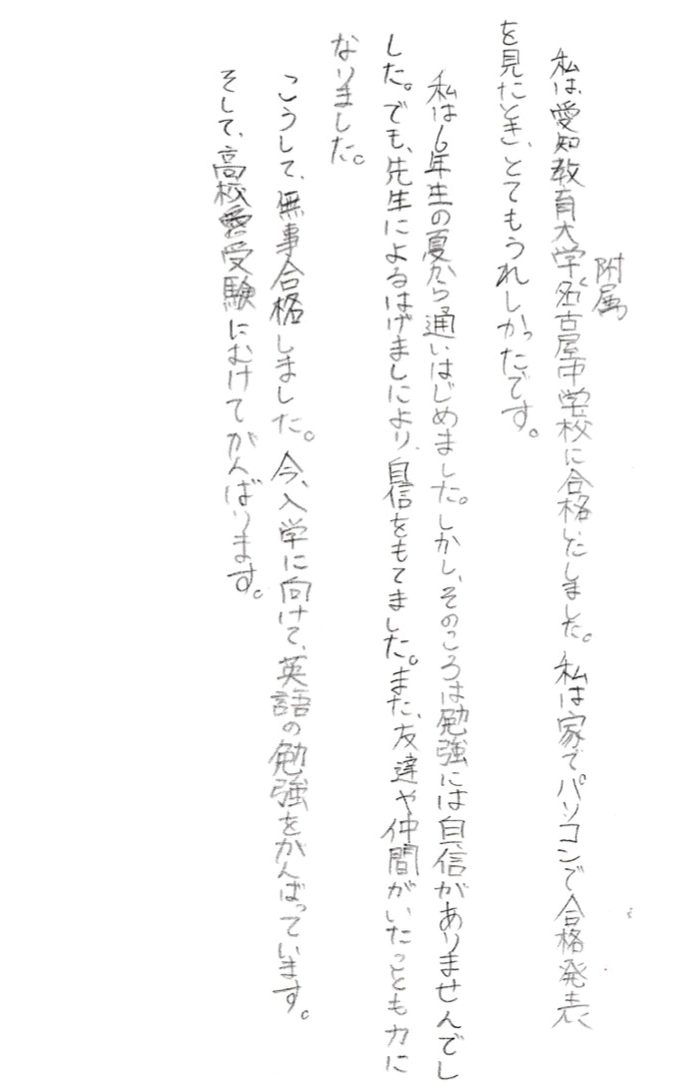 私は、愛知教育大学附属名古屋中学校に合格いたしました。私は家でパソコンで合格発表
を見たとき、とてもうれしかったです。
私は6年生の夏から通いはじめました。しかし、そのころは勉強には自信がありませんでし
した。でも、先生によるはげましにより、自信をもてました。また、友達や仲間がいたことも力に
なりました。
こうして、無事合格しました。今、入学に向けて、英語の勉強をがんばっています。
そして、高校受験にむけてがんばります。